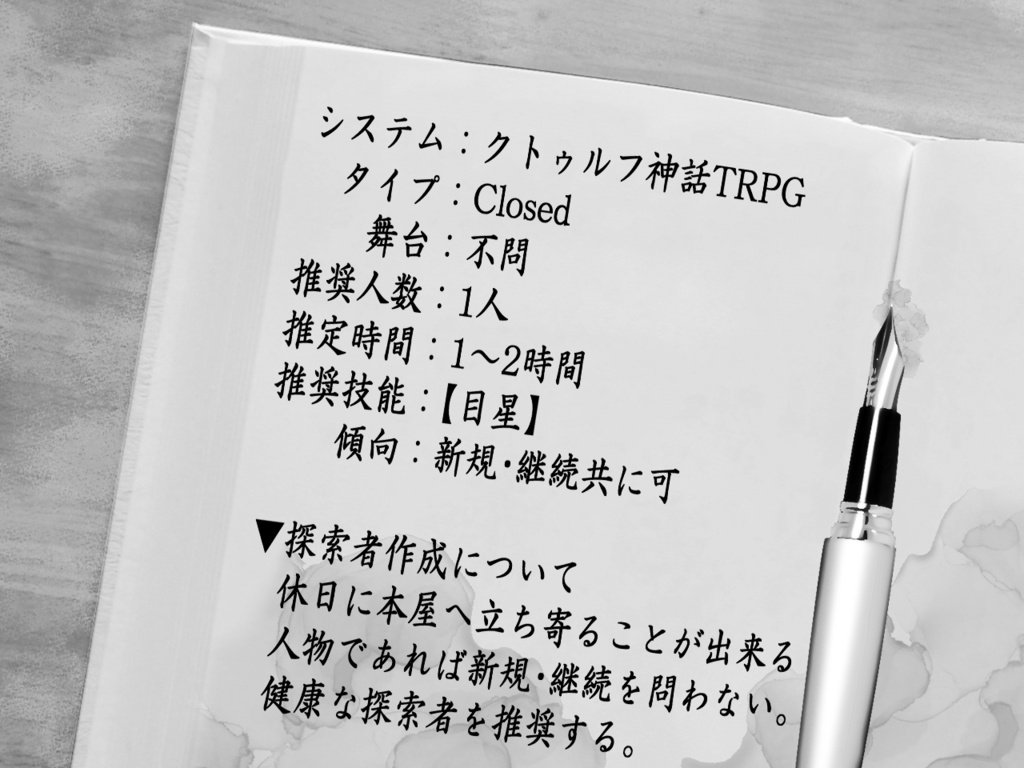 システム：クトゥルフ神話TRPG
タイプ：Closed
舞台：不問
推奨人数：1人
推定時間：1～2時間
推奨技能：【目星】
傾向：新規・継続共に可
▼探索者作成について
休日に本屋へ立ち寄ることが出来る
人物であれば新規・継続を問わない。
健康な探索者を推奨する。